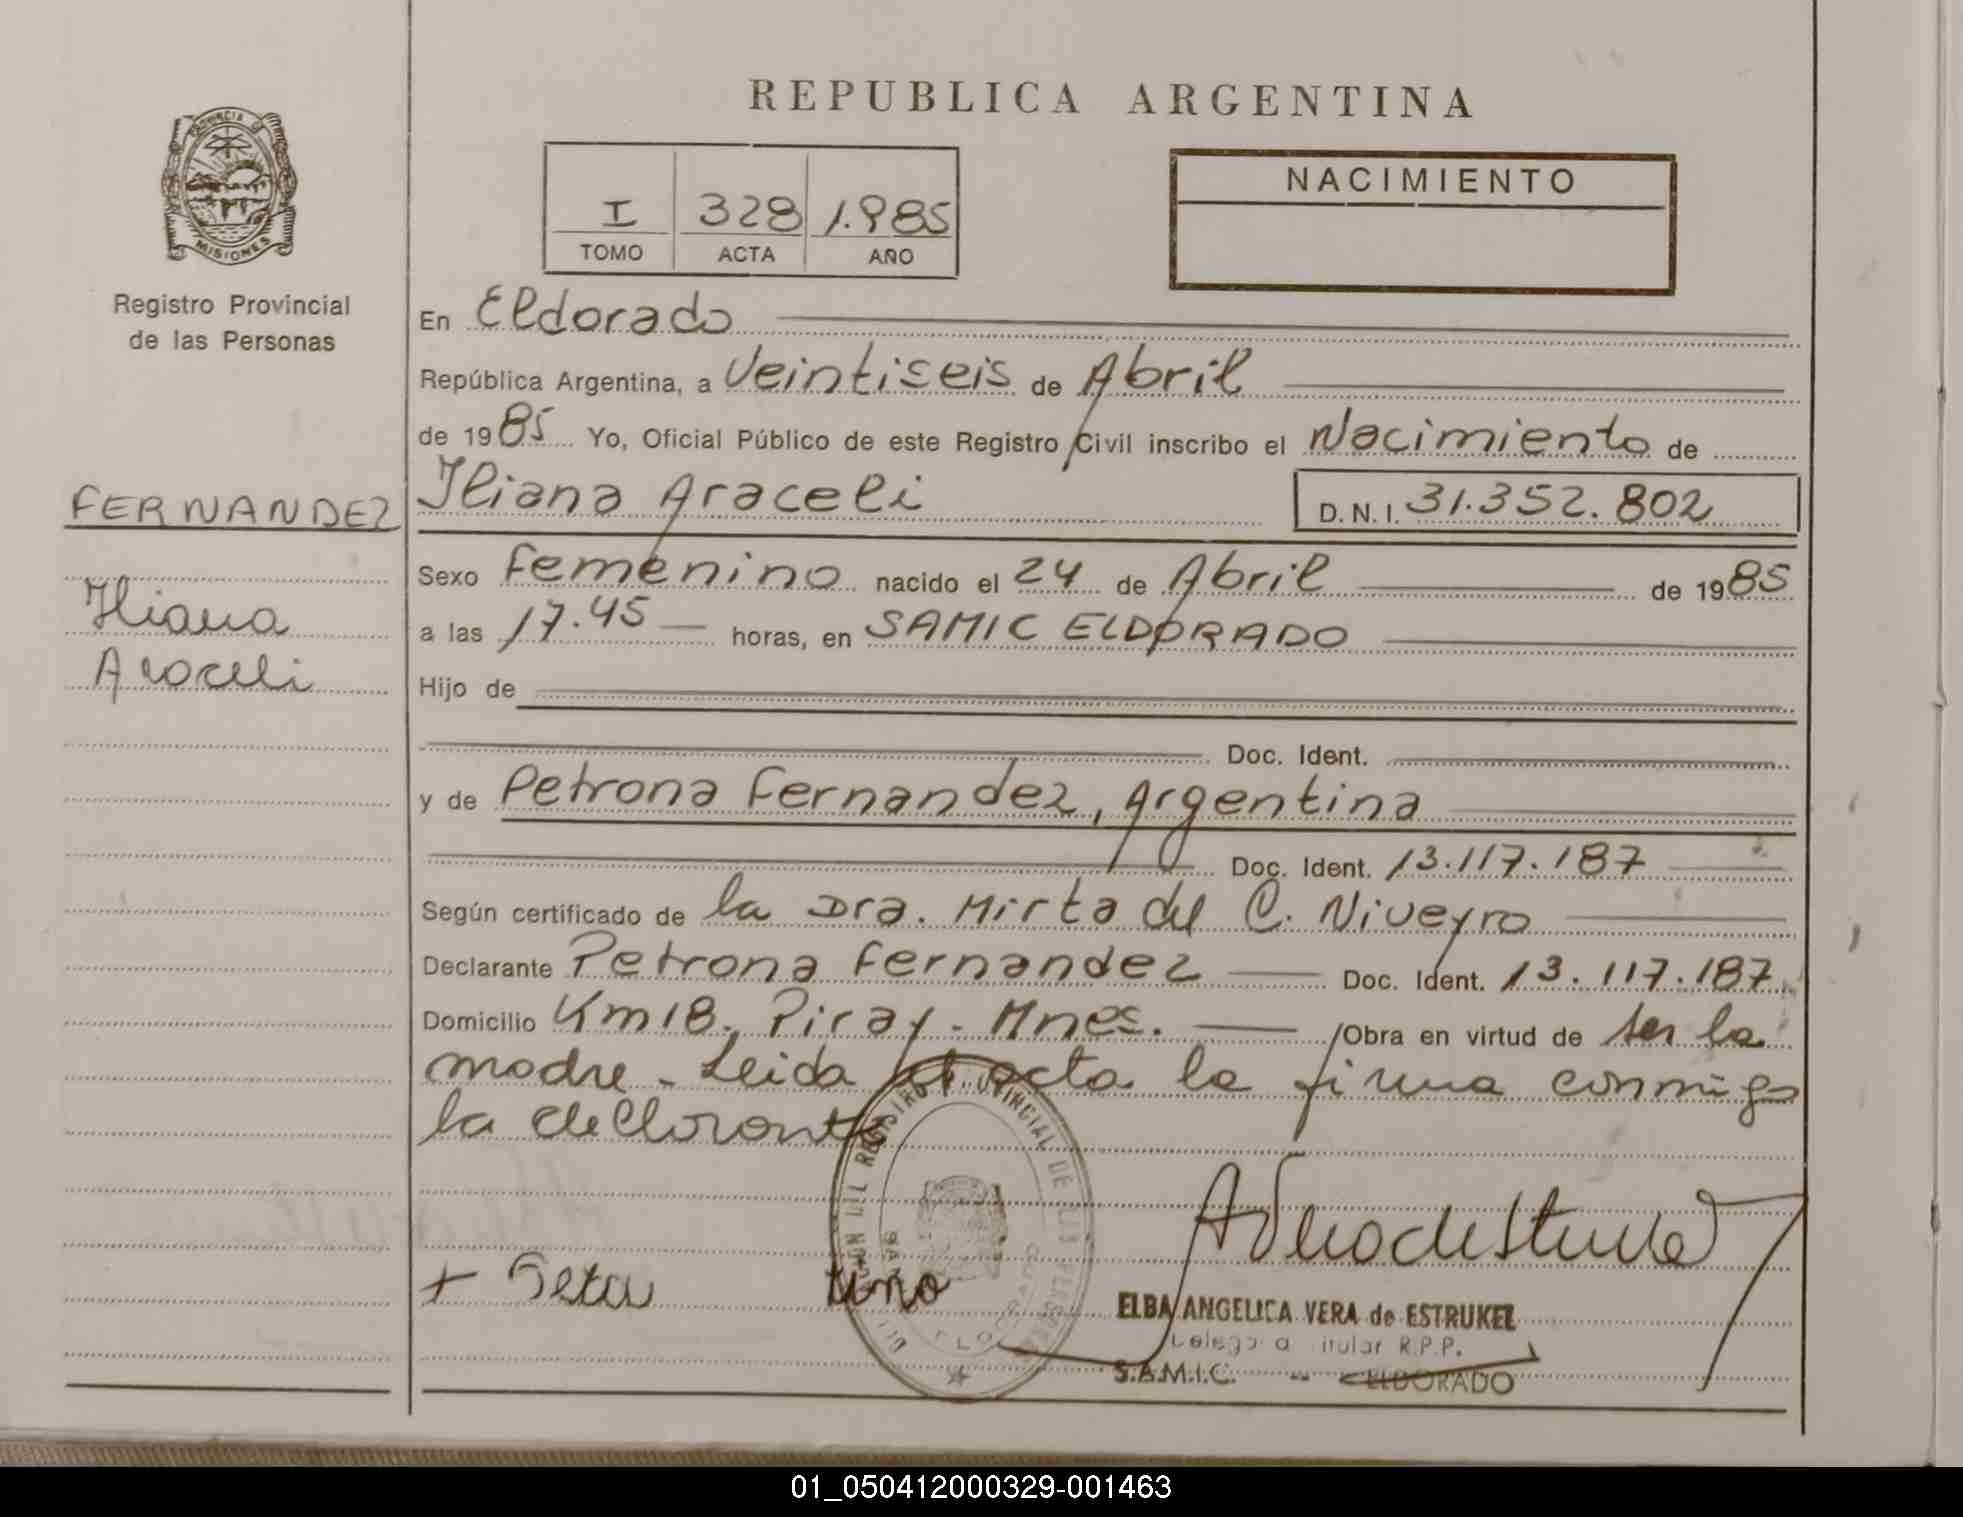 REPUBLICA ARGENTINA
PROVINCIA DE
MISIONES
Registro Provincial
de las Personas
I 328 1.985
TOMO ACTA AÑO
NACIMIENTO
En Eldorado
República Argentina, a Veintiseis de Abril
de 1985 Yo, Oficial Público de este Registro Civil inscribo el Nacimiento de
FERNANDEZ
Iliana Araceli D.N.I. 31.352.802
Iliana
Araceli
Sexo Femenino nacido el 24 de Abril de 1985
a las 17.45 horas, en SAMIC ELDORADO
Hijo de
Doc. Ident.
y de Petrona Fernandez, Argentina
Doc. Ident. 13.117.187
Según certificado de la Dra. Mirta del C. Niveyro
Declarante Petrona Fernandez Doc. Ident. 13.117.187
Domicilio Km 18. Piray - Mnes. /Obra en virtud de ser la
madre - Leida el acta la firma conmigo
la declorante
REGISTRO PROVINCIAL DE LAS PERSONAS
ELBA ANGELICA VERA de ESTRUKEL
Delegada Titular R.P.P.
S.A.M.I.C. - ELDORADO
01_050412000329-001463